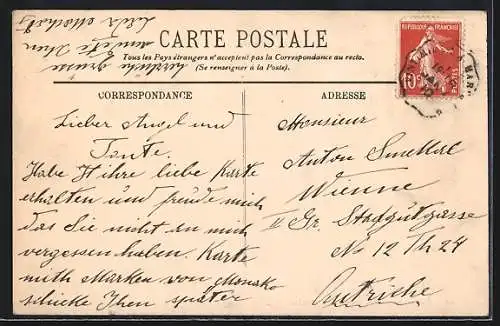 CARTE POSTALE
Tous les Pays étrangers n'acceptent pas la Correspondance au recto.
(Se renseigner à la Poste).
REPUBLIQUE FRANÇAISE
10c
POSTES
CORRESPONDANCE
Lieber und
Tante.
Habe Ihre liebe Karte
erhalten und freude mich
das Sie nicht an mich
vergessen haben. Karte
mith Marken von Monako
schicke Ihen später
herzliche Grüsse
ADRESSE
Monsieur
Anton Smekkal
Wienne
II Gr. Stadgutgasse
No 12 Th 24
Autriche